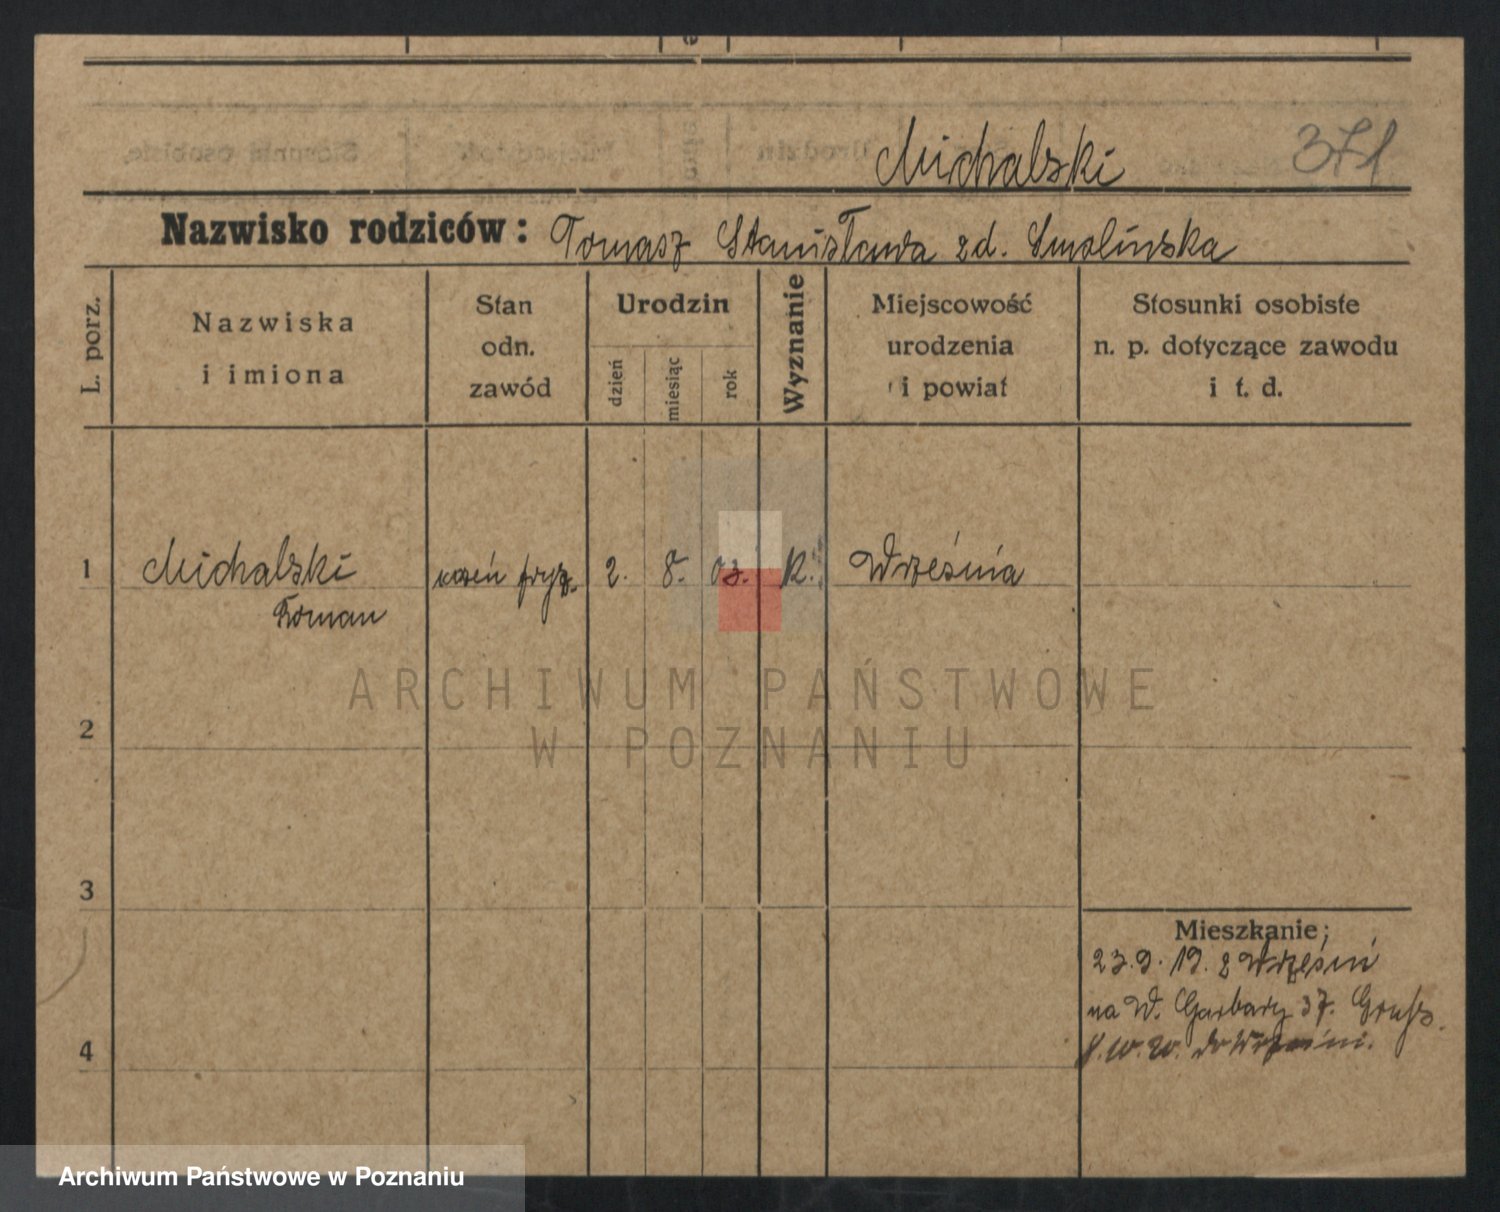 Michalski 371
Nazwisko rodziców: Tomasz Stanisława zd. Smolińska
L. porz.
Nazwiska
i imiona
Stan
odn.
zawód
Urodzin
dzień
miesiąc
rok
Wyznanie
Miejscowość
urodzenia
i powiat
Stosunki osobiste
n. p. dotyczące zawodu
i t. d.
1 Michalski uczeń fryz. 2. 8. 03. k. Września
Roman
ARCHIWUM PAŃSTWOWE
W POZNANIU
2
3
Mieszkanie;
23.9.19. z Wrześni
na W. Garbary 37.
4
do Wrześni.
Archiwum Państwowe w Poznaniu